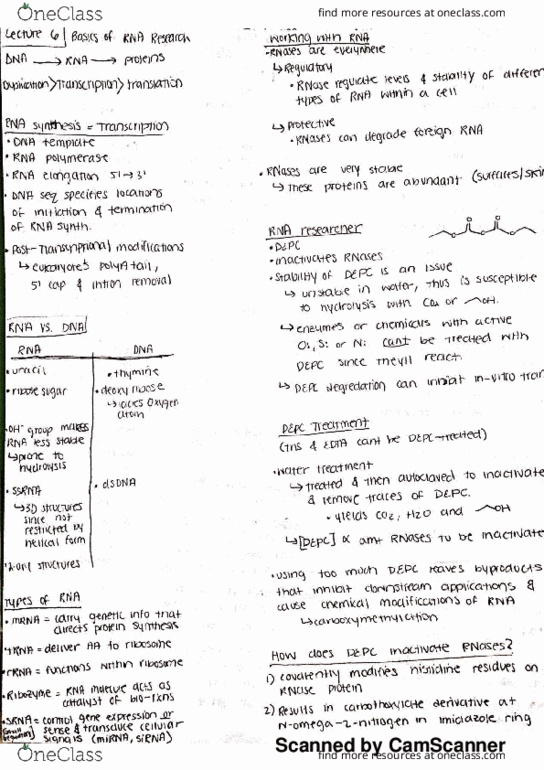 OneClass
find more resources at oneclass.com
Lecture 6 Basics of RNA Research
DNA → RNA → proteins
Duplication > Transcription > translation
RNA synthesis = Transcription
• DNA template
• RNA polymerase
• RNA elongation 5' → 3'
• DNA seq specifies locations
of initiation & termination
of RNA synth.
• modifications
↳ eukaryotes polyA tail,
5' cap & intron removal
RNA VS. DNA
RNA
DNA
• uracil
• thymine
• ribose sugar
• deoxyribose
↳ loses oxygen
atom
• OH⁻ group makes
RNA less stable
↳ prone to
hydrolysis
• ssRNA
• dsDNA
↳ 3D structures
since not
restricted by
helical form
structures
Types of RNA
• mRNA = carry genetic info that
directs protein synthesis
• tRNA = deliver AA to ribosome
• rRNA = functions within ribosome
• Ribozyme = RNA molecule acts as
catalyst of bio-rxns
• sRNA = control gene expression or
sense & transduce cellular
signals (miRNA, siRNA)
Working with RNA
• RNases are everywhere
↳ Regulatory
• RNase regulate levels & stability of different
types of RNA within a cell
↳ Protective
• RNases can degrade foreign RNA
• RNases are very stable
↳ these proteins are abundant (surfaces/skin
RNA researcher
• DEPC
• inactivates RNases
• stability of DEPC is an issue
↳ unstable in water, thus is susceptible
to hydrolysis with CO₂ or OH.
↳ enzymes or chemicals with active
O:, S: or N: cant be treated with
DEPC since theyll react.
↳ DEPC degredation can in-vitro tran
DEPC Treatment
(Tris & EDTA cant be DEPC-treated)
• water treatment
↳ treated & then autoclaved to inactivate
& remove traces of DEPC.
• yields CO₂, H2O and OH
↳ [DEPC] ∝ amt RNases to be inactivate
• using too much DEPC leaves byproducts
that inhibit downstream applications &
cause chemical modifications of RNA
↳ carboxymethylation
How does DEPC inactivate RNases?
1) covalently modifies histidine residues on
RNase protein
2) Results in derivative at
N-omega-2-nitrogen in imidazole ring
Scanned by CamScanner
OneClass
find more resources at oneclass.com